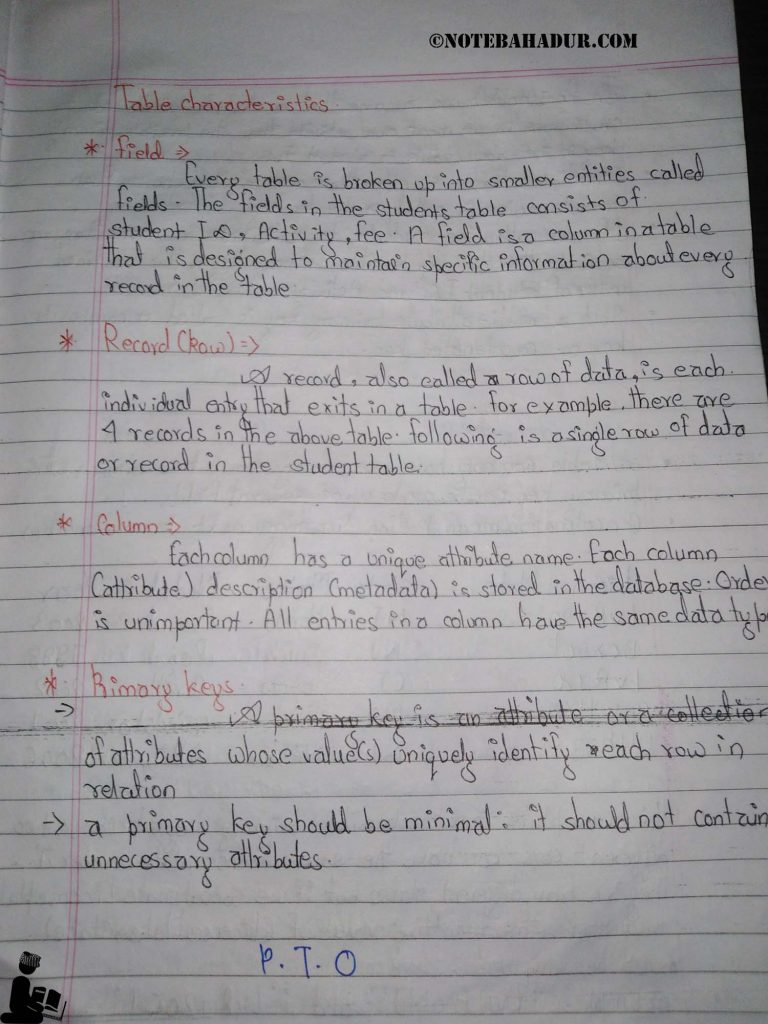 ©NOTEBAHADUR.COM
Table characteristics.
* field ⇒
Every table is broken up into smaller entities called
fields. The fields in the students table consists of
student ID, Activity, fee. A field is a column in a table
that is designed to maintain specific information about every
record in the table
* Record (Row) =>
A record, also called a row of data, is each
individual entry that exits in a table. for example, there are
4 records in the above table. following is a single row of data
or record in the student table.
* Column ⇒
Each column has a unique attribute name. Each column
(attribute) description (metadata) is stored in the database. Order
is unimportant. All entries in a column have the same data type
* Primary keys.
→ A primary key is an attribute or a collection
of attributes whose value(s) uniquely identify each row in
relation
→ a primary key should be minimal: it should not contain
unnecessary attributes.
P.T.O